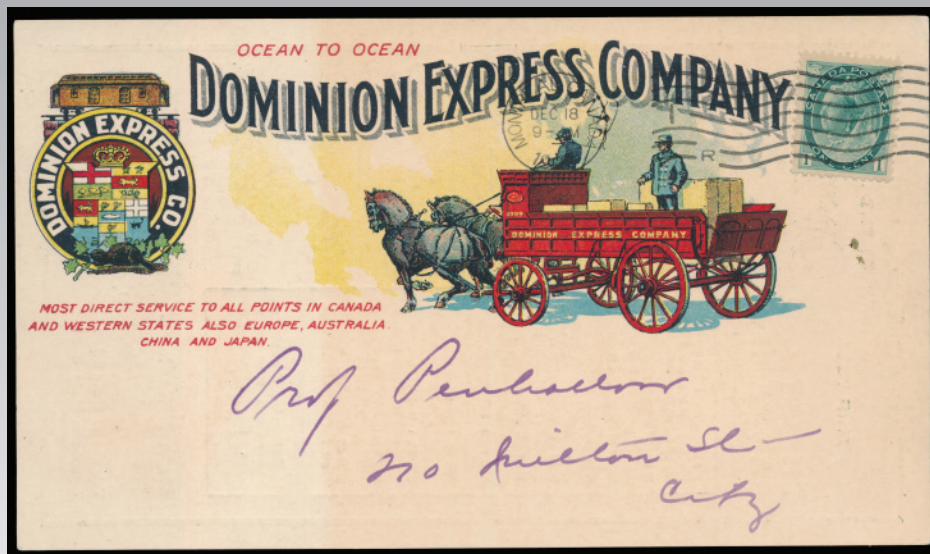 OCEAN TO OCEAN
DOMINION EXPRESS COMPANY
DOMINION EXPRESS CO.
DEC 18
9-
R
CANADA POSTAGE
ONE CENT
1 1
DOMINION EXPRESS COMPANY
MOST DIRECT SERVICE TO ALL POINTS IN CANADA
AND WESTERN STATES ALSO EUROPE, AUSTRALIA.
CHINA AND JAPAN.
Prof Penhallow
Milton St
City